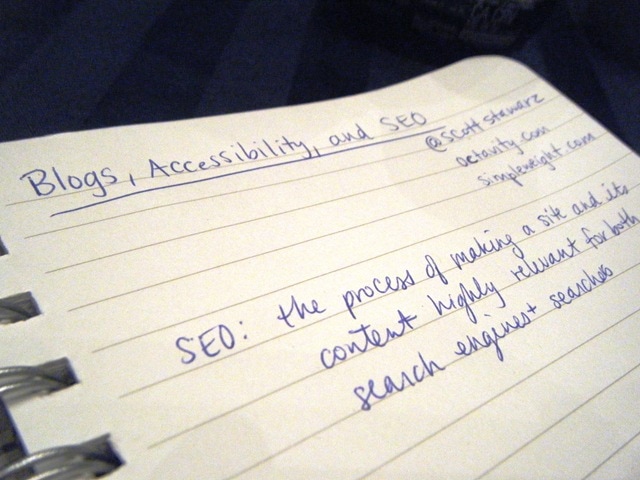 Blogs, Accessibility, and SEO
@scottstawarz
octavity.com
simpleweight.com
SEO: the process of making a site and its
content highly relevant for both
search engines + searchers